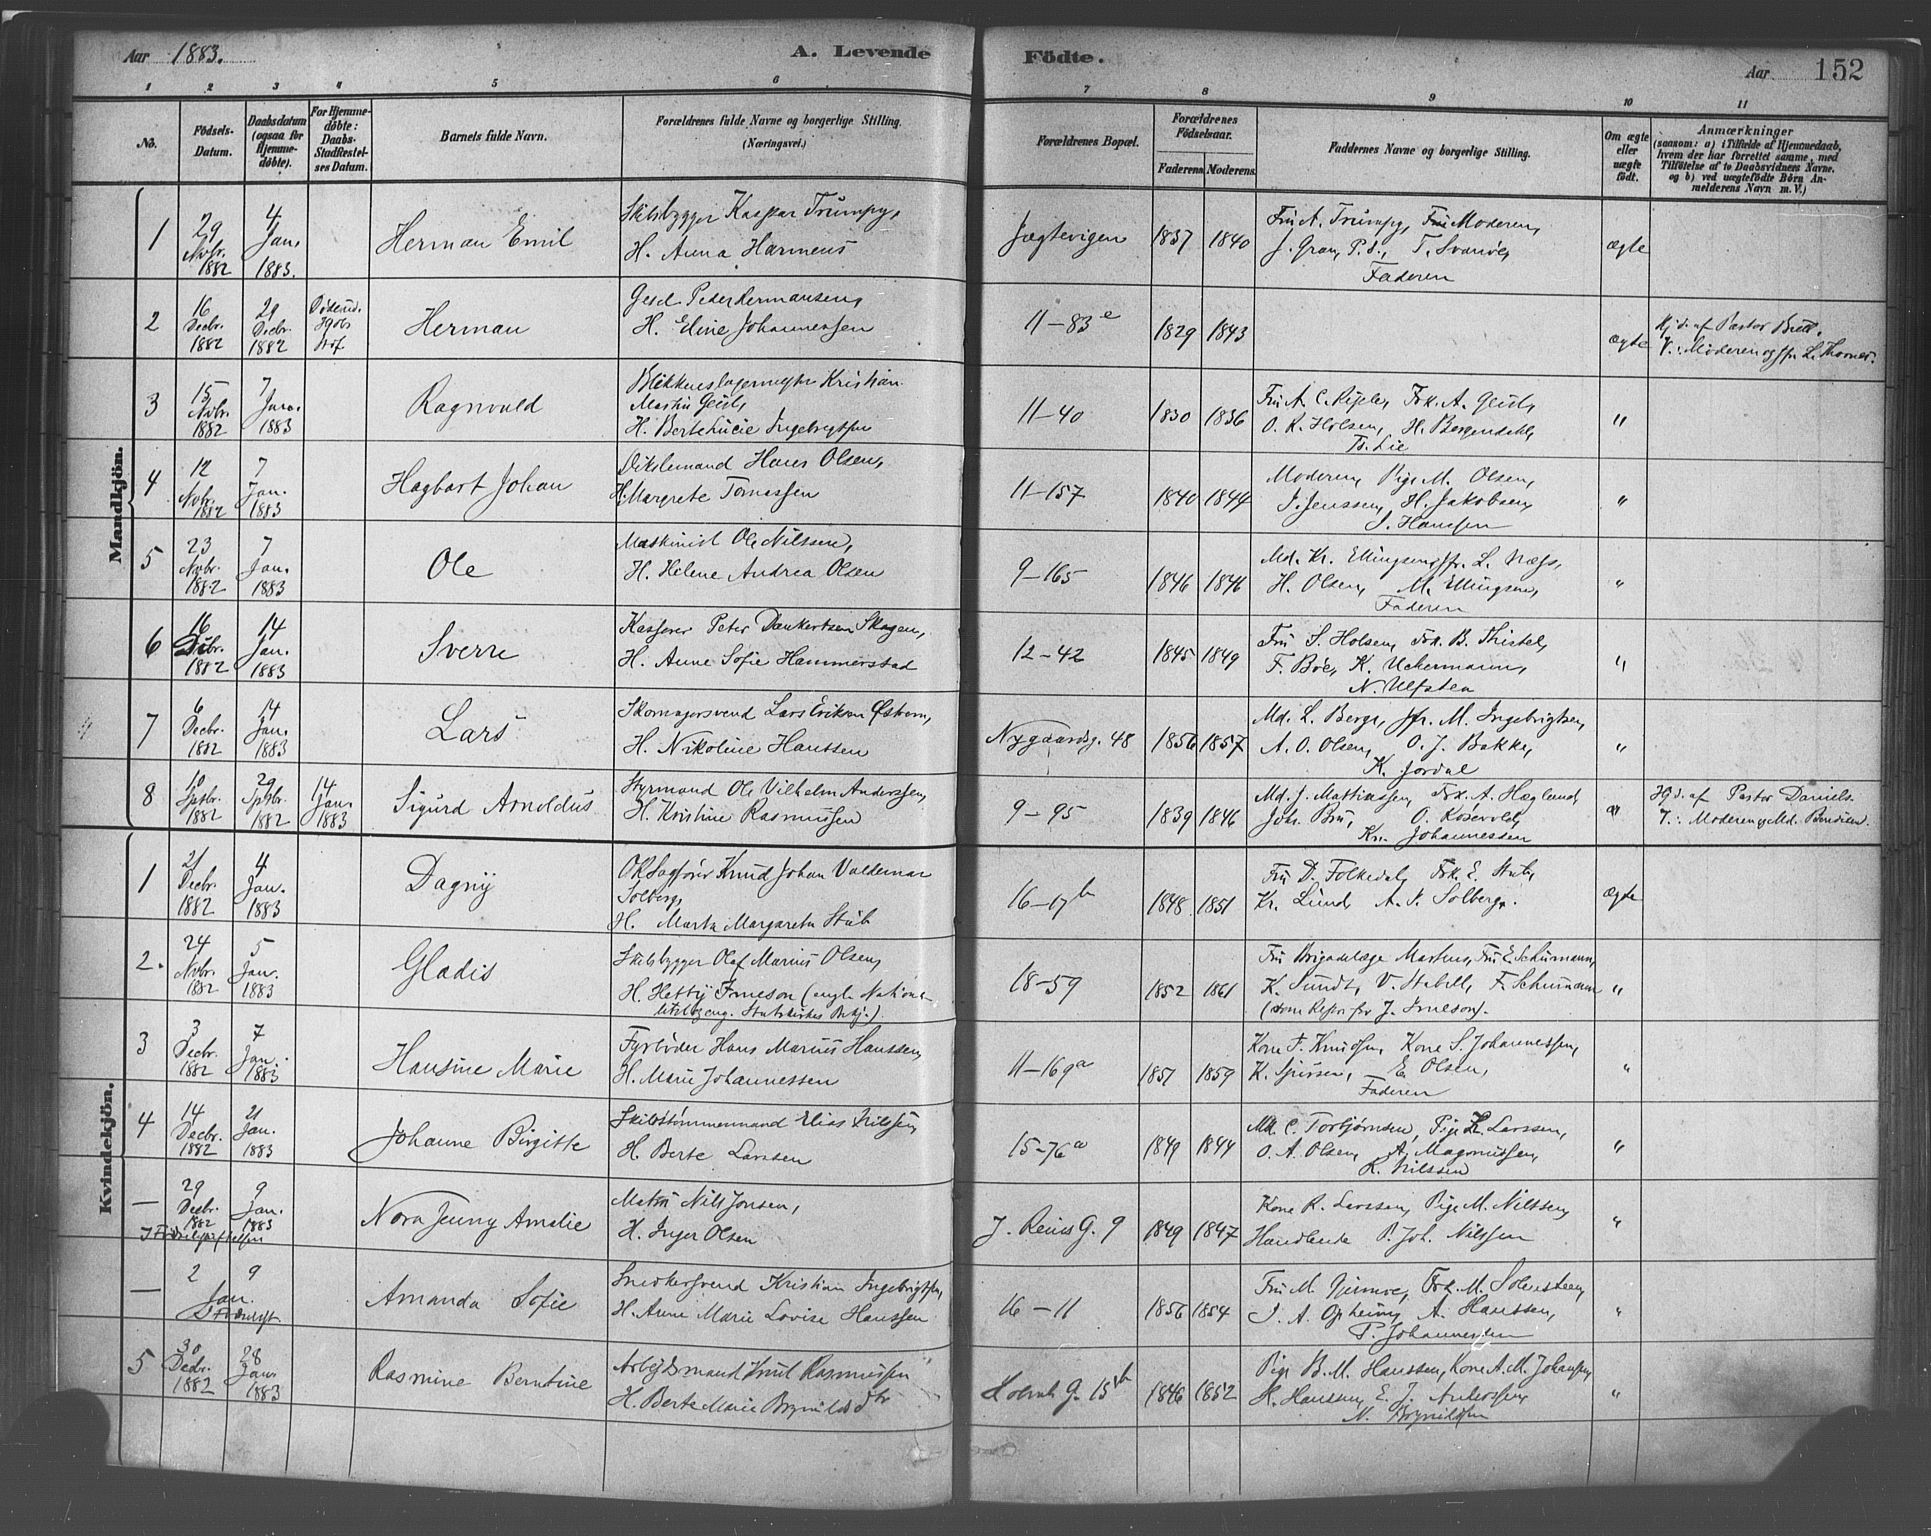 Aar 1883. A. Levende Födte. Aar 152
1 2 3 4 5 6 7 8 9 10 11
No. Födsels-Datum. Daabsdatum (ogsaa for Hjemme-døbte). For Hjemme-døbte: Daabs-Stadfæstel-ses Datum. Barnets fulde Navn. Forældrenes fulde Navne og borgerlige Stilling. (Næringsvei.) Forældrenes Bopæl. Forældrenes Födselsaar. Faderens Moderens. Faddernes Navne og borgerlige Stilling. Om ægte eller uægte født. Anmærkninger (saasom: a) i Tilfælde af Hjemmedaab, hvem der har forrettet samme, med Tilföielse af to Daabsvidners Navne, og b) ved uægtefödte Börn An-melderens Navn m. V.)
Mandkjön.
1 29 Novbr. 1882 4 Jan. 1883. Herman Emil Skibsbygger Kaspar Trumpy,
H. Anna Harmens Jægtevigen 1837 1840 Fru A. Trumpy, Fru Moderen,
J. Gran, P. d., T. Svanøe,
Faderen ægte
2 16 Decbr. 1882 29 Decbr. 1882 Herman Gesel Peder Hermansen,
H. Eline Johannessen 11–83e 1829 1843 ægte Hj.d. af Pastor
V.: Moderen og
3 15 Novbr. 1882 7 Jan. 1883 Ragnvald Blikkenslagermester Kristian
Martin
H. Berte Lucie Ingebrigtsen 11–40 1830 1836 Fru A. C. Frk. A.
O. K. Holsen, H. Bergendahl,
Lie "
4 12 Novbr. 1882 7 Jan. 1883 Hagbart Johan Hans Olsen,
H. Margrete Tomassen 11–157 1840 1844 Moderen, Pige M. Olsen,
J. Jenssen, H. Jakobsen,
J. Hanssen "
5 23 Novbr. 1882 7 Jan. 1883 Ole Maskinist Ole Nilssen,
H. Helene Andrea Olsen 9–165 1846 1846 Md. Kr. Ellingsen, Jfr. L. Næss,
H. Olsen, M. Ellingsen,
Faderen "
6 16 1882 14 Jan. 1883 Sverre Kasserer Peter Dankertsen Skagen,
H. Anne Sofie Hammerstad 12–42 1845 1849 Fru S. Holsen, Frk. B. Thistel,
F. Bøe, K. Uchermann,
N. Ulfsten "
7 6 Decbr. 1882 14 Jan. 1883 Lars Skomagersvend Lars Erikson Østrem,
H. Nikoline Hanssen Nygaardsg. 48 1856 1857 Md. L. Berge, Jfr. M. Ingebrigtsen,
A. O. Olsen, O. J. Bakke,
K. Jordal "
8 10 Sptbr. 1882 29 Sptbr. 1882 14 Jan. 1883 Sigurd Arnoldus Styrmand Ole Vilhelm Anderssen,
H. Kristine Rasmussen 9–95 1839 1846 Md. J. Mattiassen, Frk. A. Hæglund,
Joh. Bru, O. Rosevold,
Kr. Johannessen " Hj.d. af Pastor Daniels.
V.: Moderen og Md.
Kvindekjön.
1 21 Decbr. 1882 4 Jan. 1883 Dagny O.R.Sagfører Knud Johan Valdemar
Solberg,
H. Marta Margareta Stub 16–17b 1848 1851 Fru D. Folkedal, Frk. E. Stub,
Kr. Lund, A. S. Solberg. ægte
2. 24 Novbr. 1882 5 Jan. 1883 Gladis Skibsbygger Olaf Marius Olsen,
H. Hetty Imeson (engl. National-
Statskirkes Bekj.). 18–59 1852 1861 Fru Brigadelæge Martens, Fru E. Schumann,
K. Sundt, V. Stabell, F. Schumann
(som Repr. for J. Imeson). "
3 3 Decbr. 1882 7 Jan. 1883 Hansine Marie Fyrbøder Hans Marius Hanssen,
H. Marie Johannessen 11–169a 1851 1859 Kone F. Knudsen, Kone S. Johannessen,
K. E. Olsen,
Faderen "
4 14 Decbr. 1882 21 Jan. 1883 Johanne Birgitte Skibstømmermand Elias Nilssen,
H. Berte Larssen 15–76a 1849 1844 Md. C. Torbjørnsen, Pige L. Larssen,
O. A. Olsen, A. Magnussen,
K. Nilssen "
— 29 Decbr. 1882 9 Jan. 1883 Nora Jenny Amalie Matros Nils Jonsen,
H. Inger Olsen J. Reius G. 9 1849 1847 Kone R. Larssen, Pige M. Nilssen,
Handlende P. Joh. Nilssen "
I Födselsstiftelsen
— 2 9 Jan. Amanda Sofie Snedkersvend Kristian Ingebrigtsen,
H. Anne Marie Lovise Hanssen 16–11 1856 1854 Fru M. Frk. M.
J. A. Opheim, A. Hanssen,
P. Johannessen "
5 30 Decbr. 1882 28 Jan. 1883 Rasmine Berntine Arbejdsmand Knut Rasmussen
H. Berte Marie Brynildsdtr G. 15b 1846 1852 Pige B. M. Hanssen, Kone A. M. Johansen,
H. Hanssen, E. J. Anderssen,
N. Brynildsen "